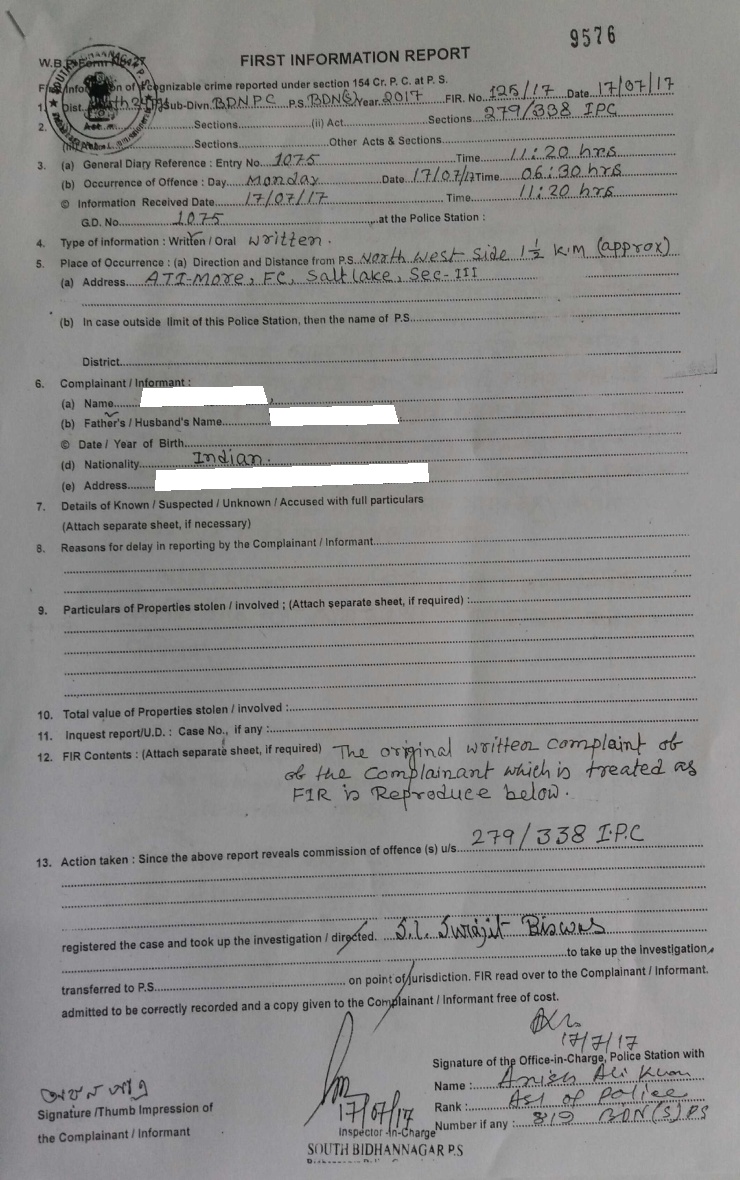 9576
FIRST INFORMATION REPORT
First Information of cognizable crime reported under section 154 Cr. P. C. at P. S.
1. Dist. Sub-Divn. BDNPC P.S. BDN(S) Year 2017 FIR. No. 125/17 Date 17/07/17
2. Sections (ii) Act Sections 279/338 IPC
Sections Other Acts & Sections
3. (a) General Diary Reference : Entry No. 1075 Time 11:20 hrs
(b) Occurrence of Offence : Day Monday Date 17/07/17 Time 06:30 hrs
© Information Received Date 17/07/17 Time 11:20 hrs
G.D. No. 1075 at the Police Station :
4. Type of information : Written / Oral written.
5. Place of Occurrence : (a) Direction and Distance from P.S. North West side 1½ K.M (approx)
(a) Address ATI-More, FC, Saltlake, Sec-III
(b) In case outside limit of this Police Station, then the name of P.S.
District
6. Complainant / Informant :
(a) Name
(b) Father's / Husband's Name
© Date / Year of Birth
(d) Nationality Indian.
(e) Address
7. Details of Known / Suspected / Unknown / Accused with full particulars
(Attach separate sheet, if necessary)
8. Reasons for delay in reporting by the Complainant / Informant
9. Particulars of Properties stolen / involved ; (Attach separate sheet, if required) :
10. Total value of Properties stolen / involved :
11. Inquest report/U.D. : Case No., if any :
12. FIR Contents : (Attach separate sheet, if required) The original written complaint of
of the Complainant which is treated as
FIR is Reproduce below.
13. Action taken : Since the above report reveals commission of offence (s) u/s. 279/338 I.P.C
registered the case and took up the investigation / directed. S.I. Surajit Biswas
to take up the investigation,
transferred to P.S. on point of jurisdiction. FIR read over to the Complainant / Informant.
admitted to be correctly recorded and a copy given to the Complainant / Informant free of cost.
17/7/17
Signature of the Office-in-Charge, Police Station with
Name : Anish Ali Khan
Rank : ASI of Police
Number if any : 819 BDN(S) PS
Signature /Thumb Impression of
the Complainant / Informant
17/07/17
Inspector-in-Charge
SOUTH BIDHANNAGAR P.S